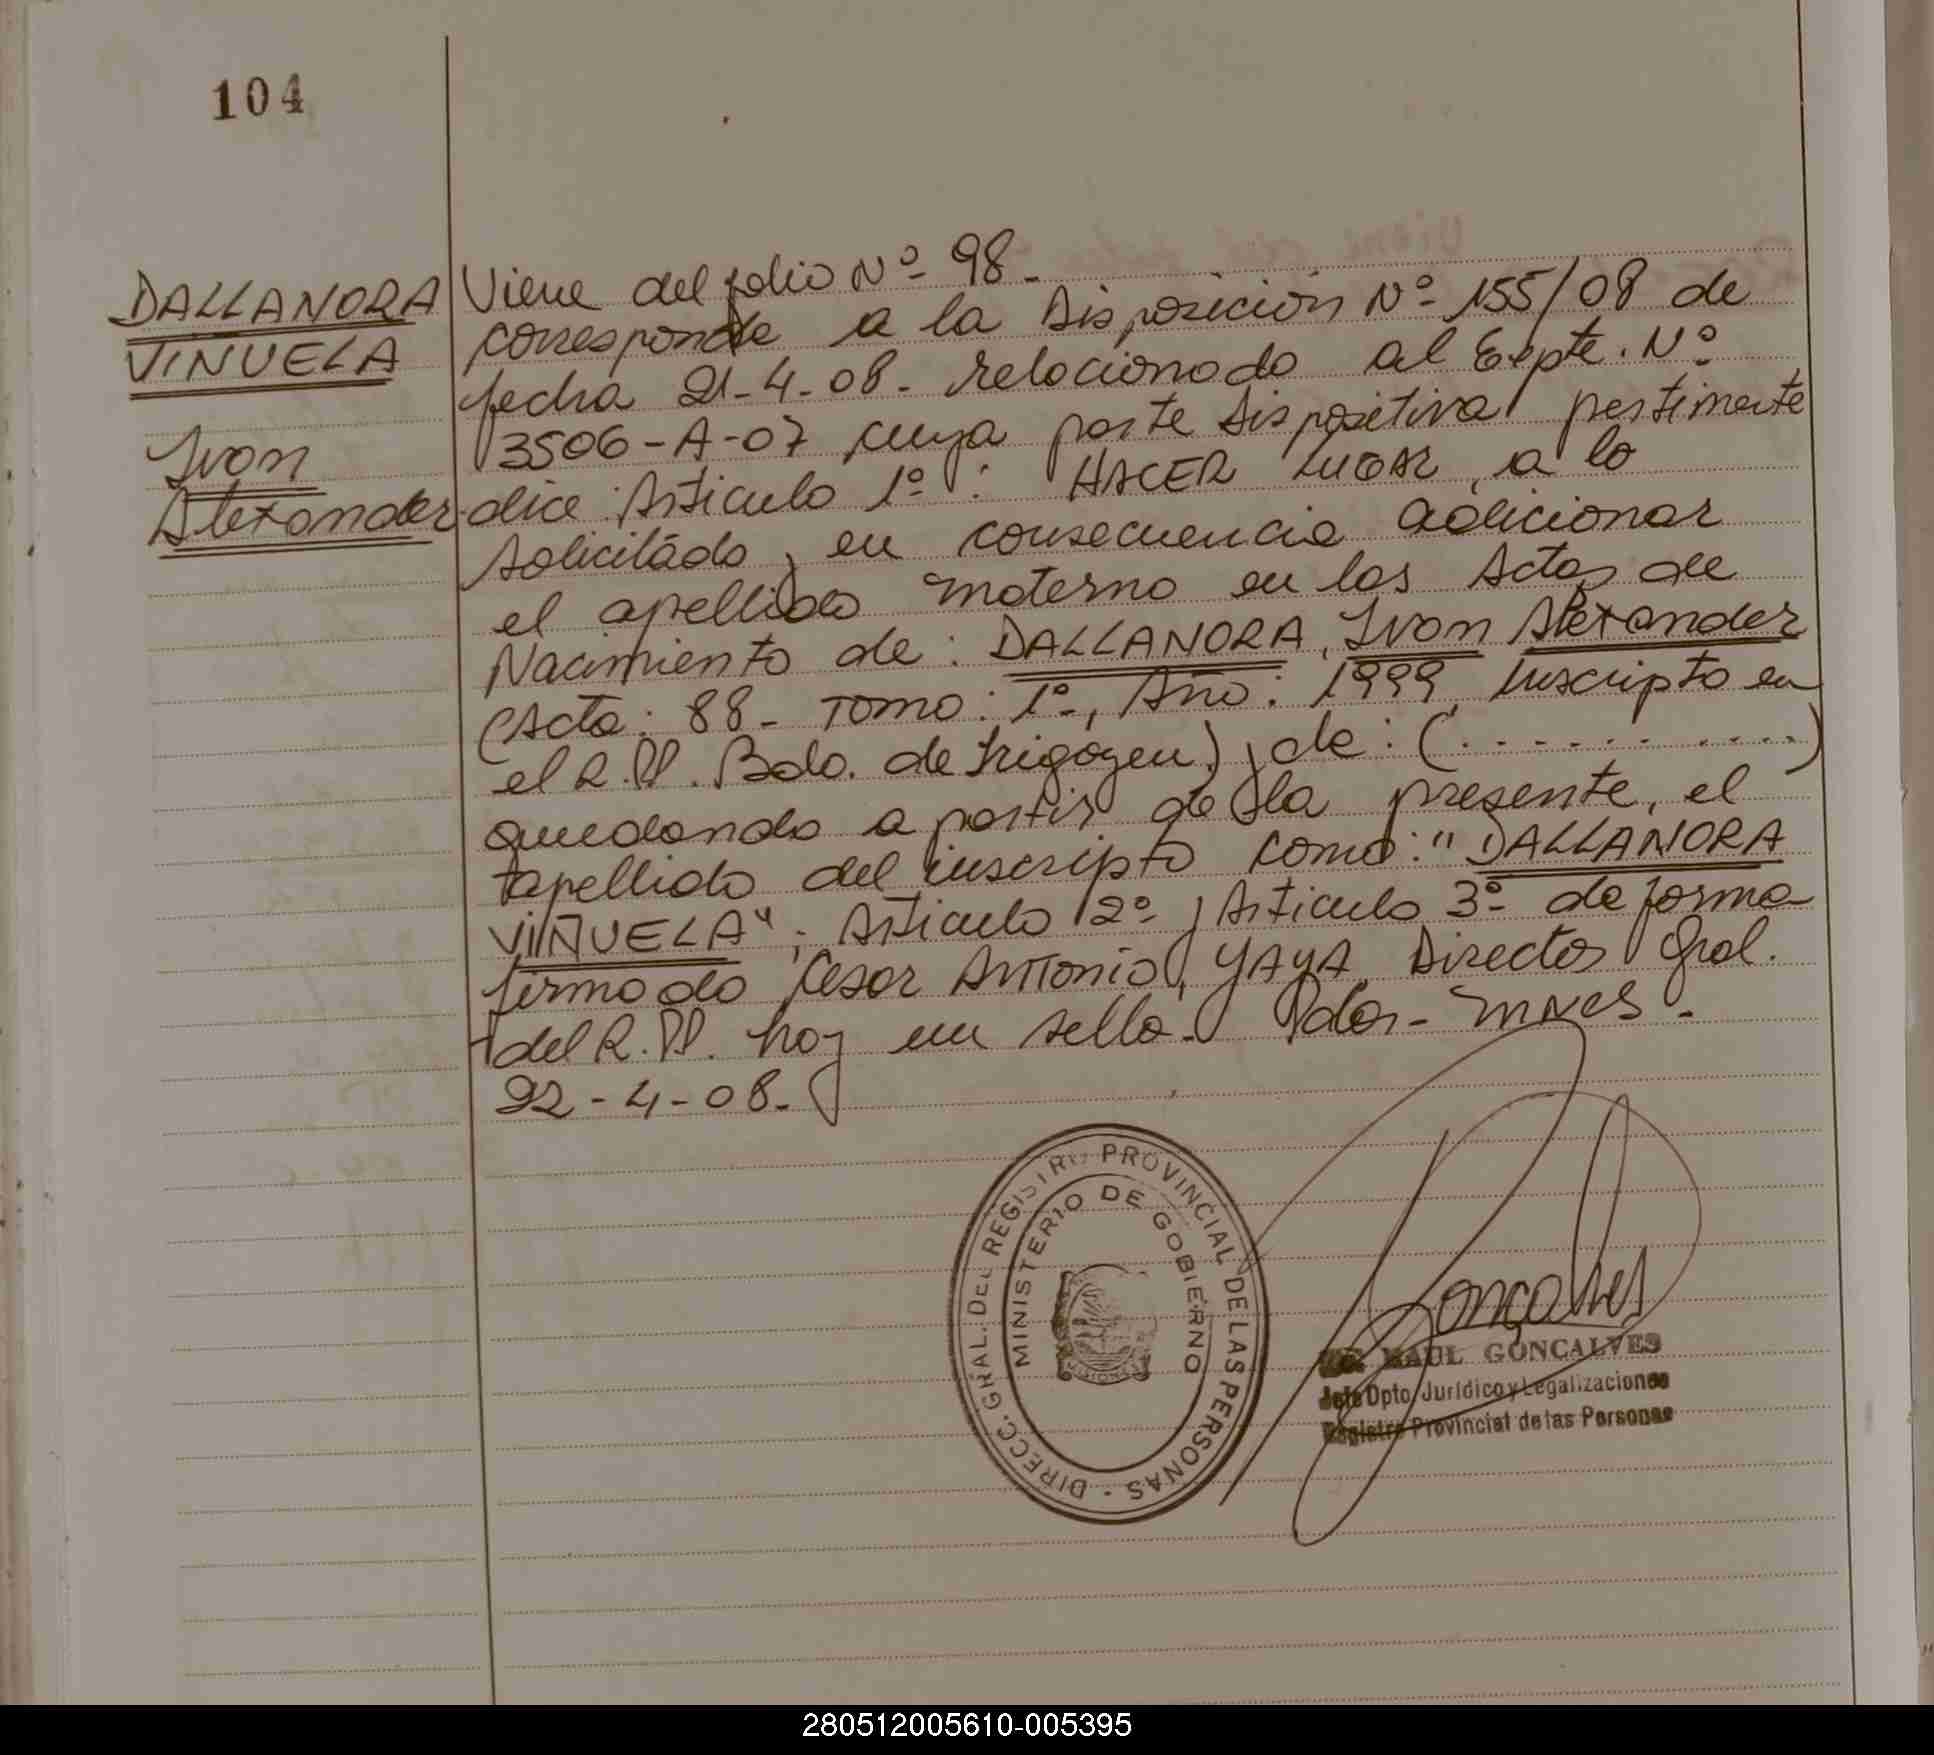 104
DALLANORA
VIÑUELA
Ivon
Alexander
Viene del folio Nº 98-
corresponde a la Disposición Nº 155/08 de
fecha 21-4-08- relacionado al Expte. Nº
3506-A-07 cuya parte dispositiva pertinente
dice: Artículo 1º: HACER LUGAR a lo
solicitado, en consecuencia adicionar
el apellido materno en las Actas de
Nacimiento de: DALLANORA, Ivon Alexander
(Acta: 88- Tomo: 1º-, Año: 1999, Inscripto en
el R.PP. Bdo. de Irigoyen), de: (............)
quedando a partir de la presente, el
apellido del inscripto como: "DALLANORA
VIÑUELA"; Artículo 2º y Artículo 3º de forma
firmado Cesar Antonio, YAYA Director Gral.
del R.PP. hay un sello- Pdas- Mnes-
22-4-08-
DIRECC. GRAL. DEL REGISTRO PROVINCIAL DE LAS PERSONAS -
MINISTERIO DE GOBIERNO
MISIONES
Gonçalves
RAUL GONCALVES
Jefe Dpto Jurídico y Legalizaciones
Registro Provincial de las Personas
280512005610-005395